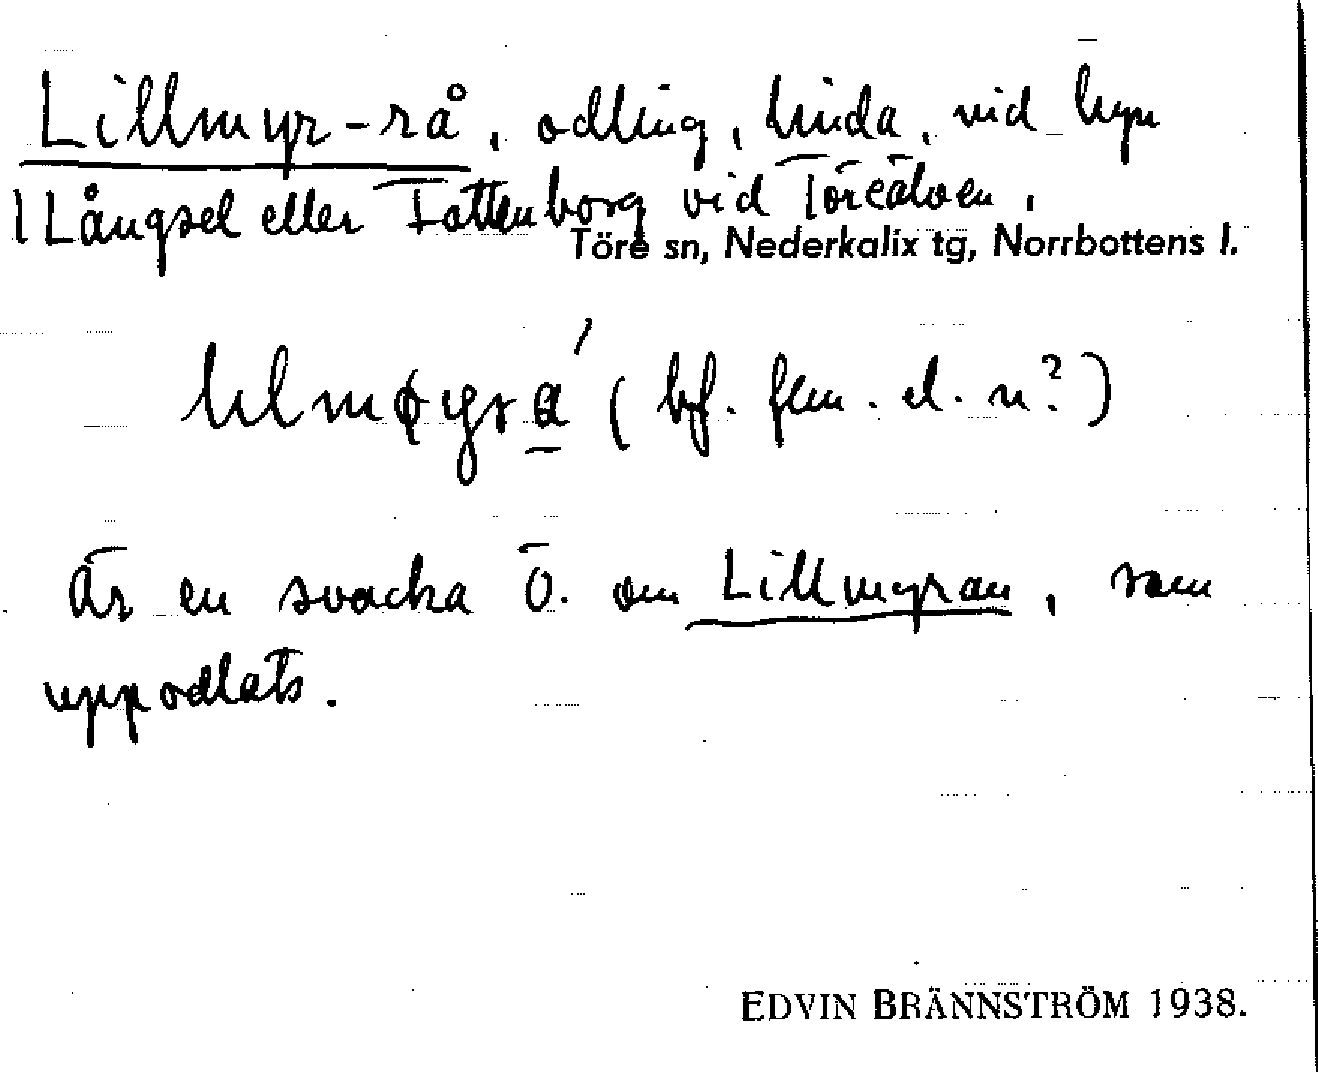 Lillmyr-rå, odling, linda, vid byn
Långsel eller Fattenborg vid Töreälven,
Töre sn, Nederkalix tg, Norrbottens l.
(bf. fem. el. n?)
Är en svacka Ö. om Lillmyran, som
uppodlats.
EDVIN BRÄNNSTRÖM 1938.